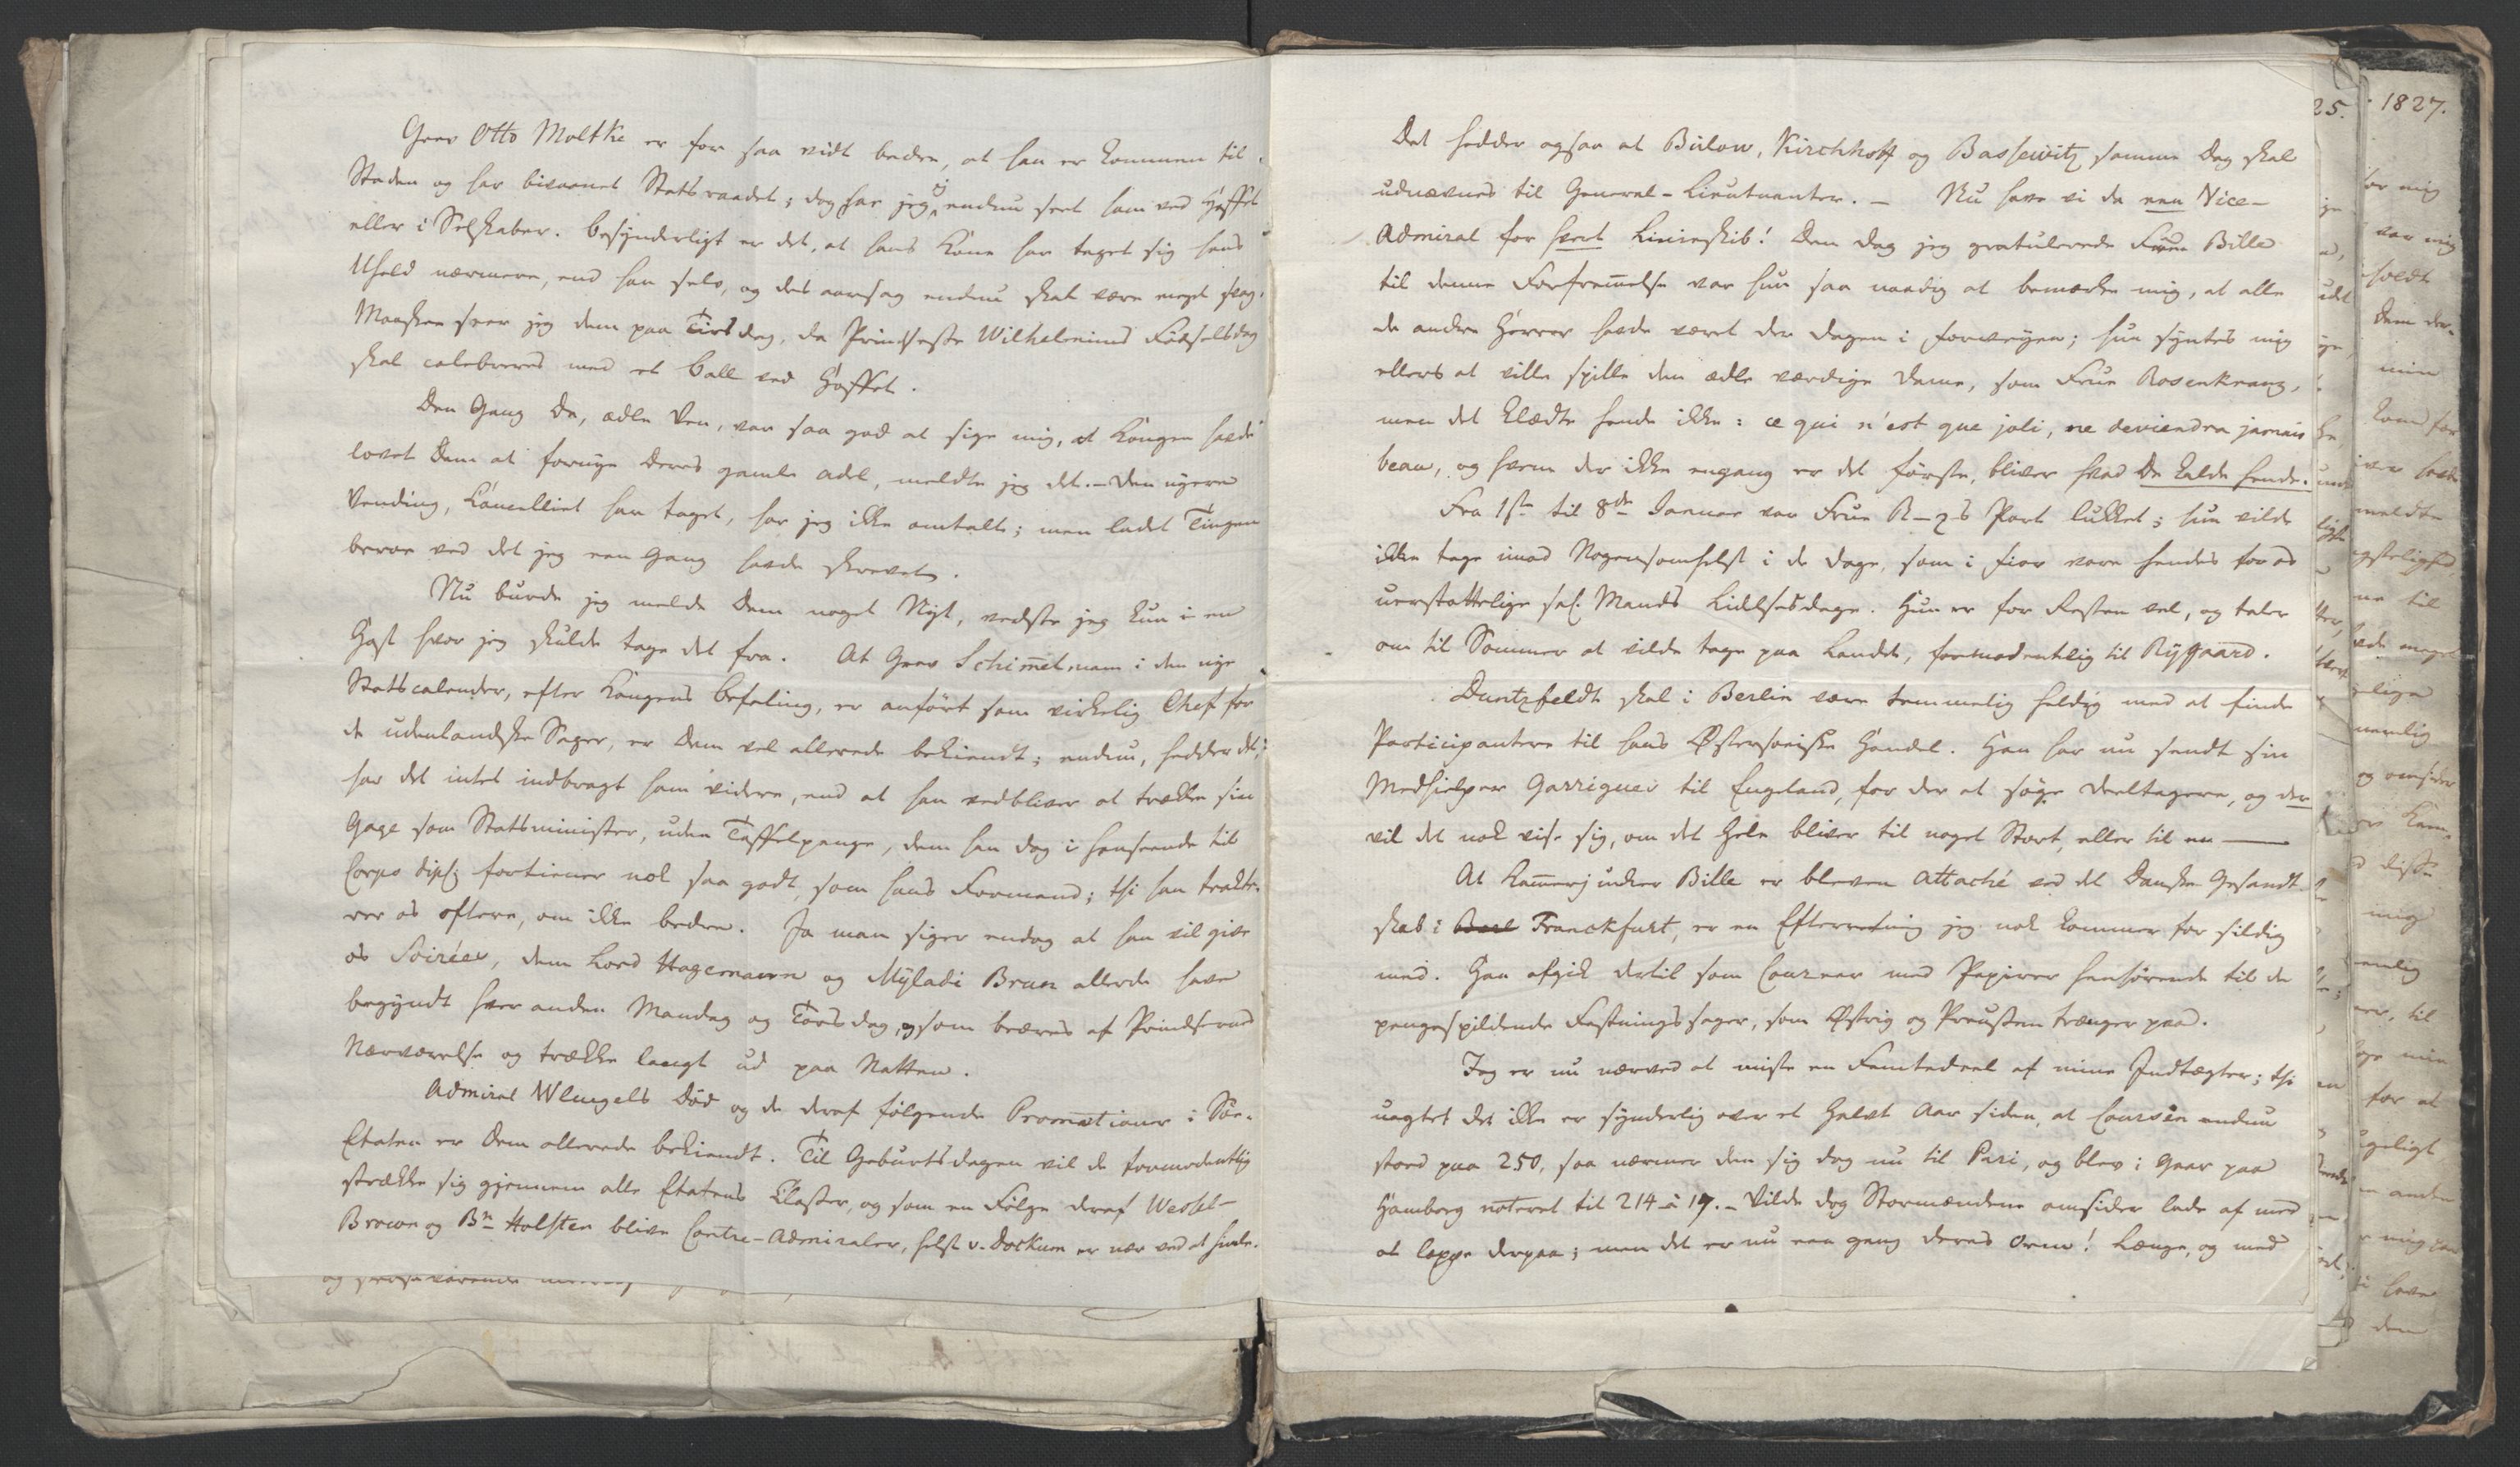 Grev Otto Moltke er for saa vidt bedre, at han er kommen til
Staden og har bivaanet Statsraadet; dog har jeg ej endnu seet ham ved Hoffet
eller i Selskaber. Besynderligt er det, at hans Kone har taget sig hans
Uheld nærmere, end han selv, og des aarsag endnu skal være meget svag.
Maaskee seer jeg dem paa Tirsdag, da Prindsesse Wilhelmines Födselsdag
skal celebreres med et Ball ved Hoffet.
Den Gang De, ædle Ven, var saa god at sige mig, at Kongen havde
lovet Dem at fornye Deres gamle Adel, meldte jeg det. - Den nyere
Vending, Cancelliet har taget, har jeg ikke omtalt; men ladet Tingen
beroe ved det jeg een Gang havde skrevet.
Nu burde jeg melde Dem noget Nyt, vedste jeg kun i en
Hast hvor jeg skulde tage det fra. At Grev Schimmelmann i den nye
Statscalender, efter Kongens Befaling, er anfört som virkelig Chef for
de udenlandske Sager, er Dem vel allerede bekiendt; endnu, hedder det,
har det intet indbragt ham videre, end at han vedbliver at trække sin
Gage som Statsminister, uden Taffelpenge, dem han dog i Henseende til
Corps dipl: fortiener nok saa godt, som hans Formand; thi han trakte-
rer os oftere, om ikke bedre. Ja man siger endog at han vil give
os Soiréer, dem Lord Hagemann og Mÿladi Brun allerede have
begyndt hver anden Mandag og Torsdag, og som beæres af Prindsernes
Nærværelse og trække langt ud paa Natten.
Admiral Wleugels Död og de deraf fölgende Promotioner i Söe-
Etaten er Dem allerede bekiendt. Til Geburtsdagen vil de formodentlig
strække sig gjennem alle Etatens Classer, og som en Fölge deraf Wessel-
Brown og Bn Holsten blive Contre-Admiraler, helst v. Dockum er nær ved at
Det hedder ogsaa at Bülow, Kirchhoff og Bassewitz samme Dag skal
udnævnes til General-Lieutnanter. - Nu have vi da een Vice-
Admiral for hvert Linieskib! Den Dag jeg gratulerede Frue Bille
til denne Forfremmelse var hun saa naadig at bemærke mig, at alle
de andre Herrer havde været der Dagen i forveyen; hun syntes mig
ellers at ville spille den ædle værdige Dame, som Frue Rosenkranz,
men det klædte hende ikke: ce qui n'est que joli, ne deviendra jamais
beau, og hvem der ikke engang er det förste, bliver hvad De kalde hende.
Fra 1ste til 8de Januar var Frue R-z's Port lukket; hun vilde
ikke tage imod Nogensomhelst i de Dage, som i fior vare hendes for os
uerstattelige sal. Mands Lidelsesdage. Hun er for Resten vel, og taler
om til Sommer at vilde tage paa Landet, formodentlig til Rÿegaard.
Duntzfeldt skal i Berlin være temmelig heldig med at finde
Participantere til hans Østersöeiske Handel. Han har nu sendt sin
Medhielper Garrigues til Engeland, for der at söge Deeltagere, og der
vil det nok vise sig, om det Hele bliver til noget Stort, eller til en ——
At Kammerjunker Bille er bleven Attaché ved det Danske Gesandt-
skab i Franckfurt, er en Efterretning jeg nok kommer for sildig
med. Han afgik dertil som Coureer med Papirer henhörende til de
pengespildende Festningssager, som Østrig og Preussen trænger paa.
Jeg er nu nærved at miste en Femtedeel af mine Indtægter; thi
uagtet det ikke er synderlig over et Halvt Aar siden, at Coursen endnu
stoed paa 250, saa nærmer den sig dog nu til Pari, og blev i Gaar paa
Hamborg noteret til 214 à 17. - Vilde dog Stormændene omsider lade af med
at lappe derpaa; men det er nu een gang deres Orm! Længe, og med
25.
1827.
for mig
var mig
min
meldte
til
meget
nemlig
mig
til
for at